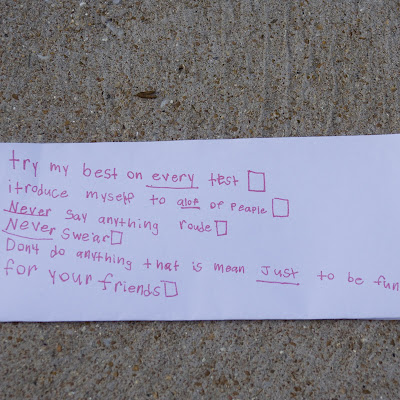 try my best on every test □
itroduce myself to alot of peaple □
Never say anything roude □
Never swear □
Dont do anything that is mean just to be fun
for your friends □